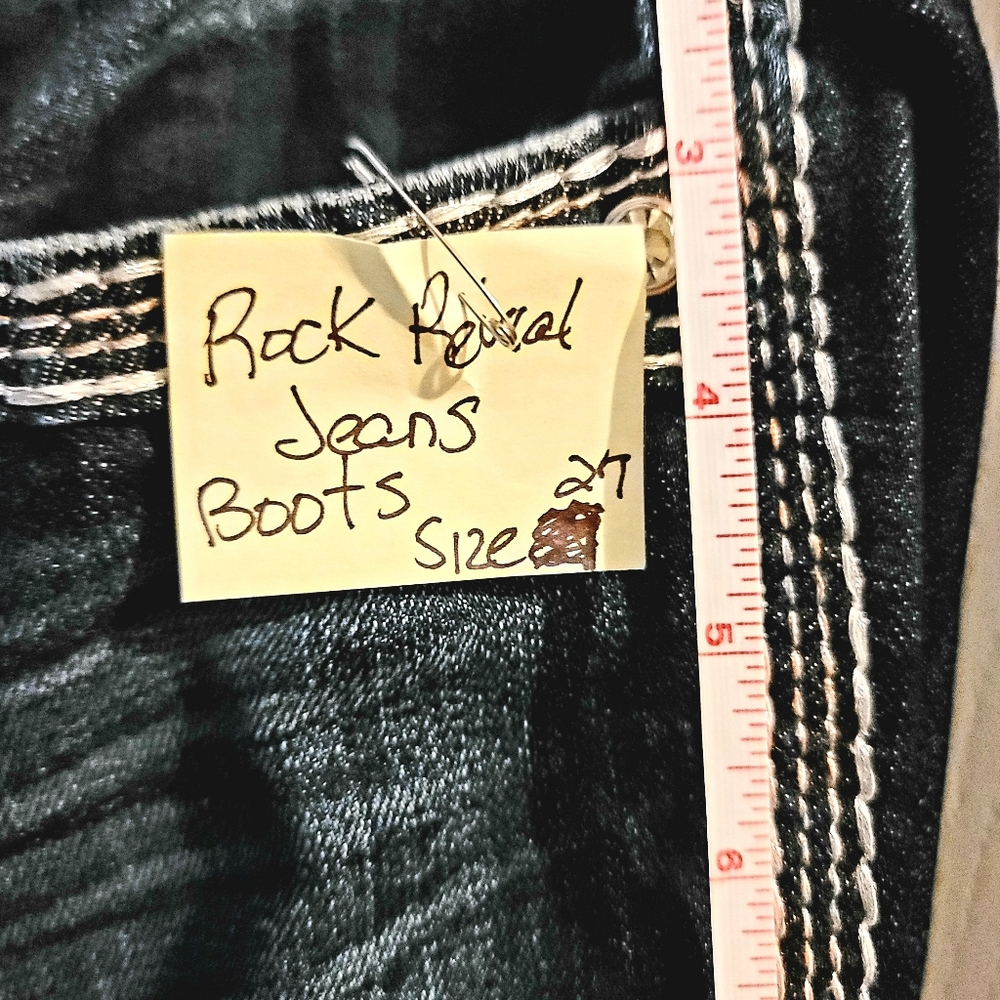 Rock Revival
Jeans
Boots
27
Size
3
4
5
6